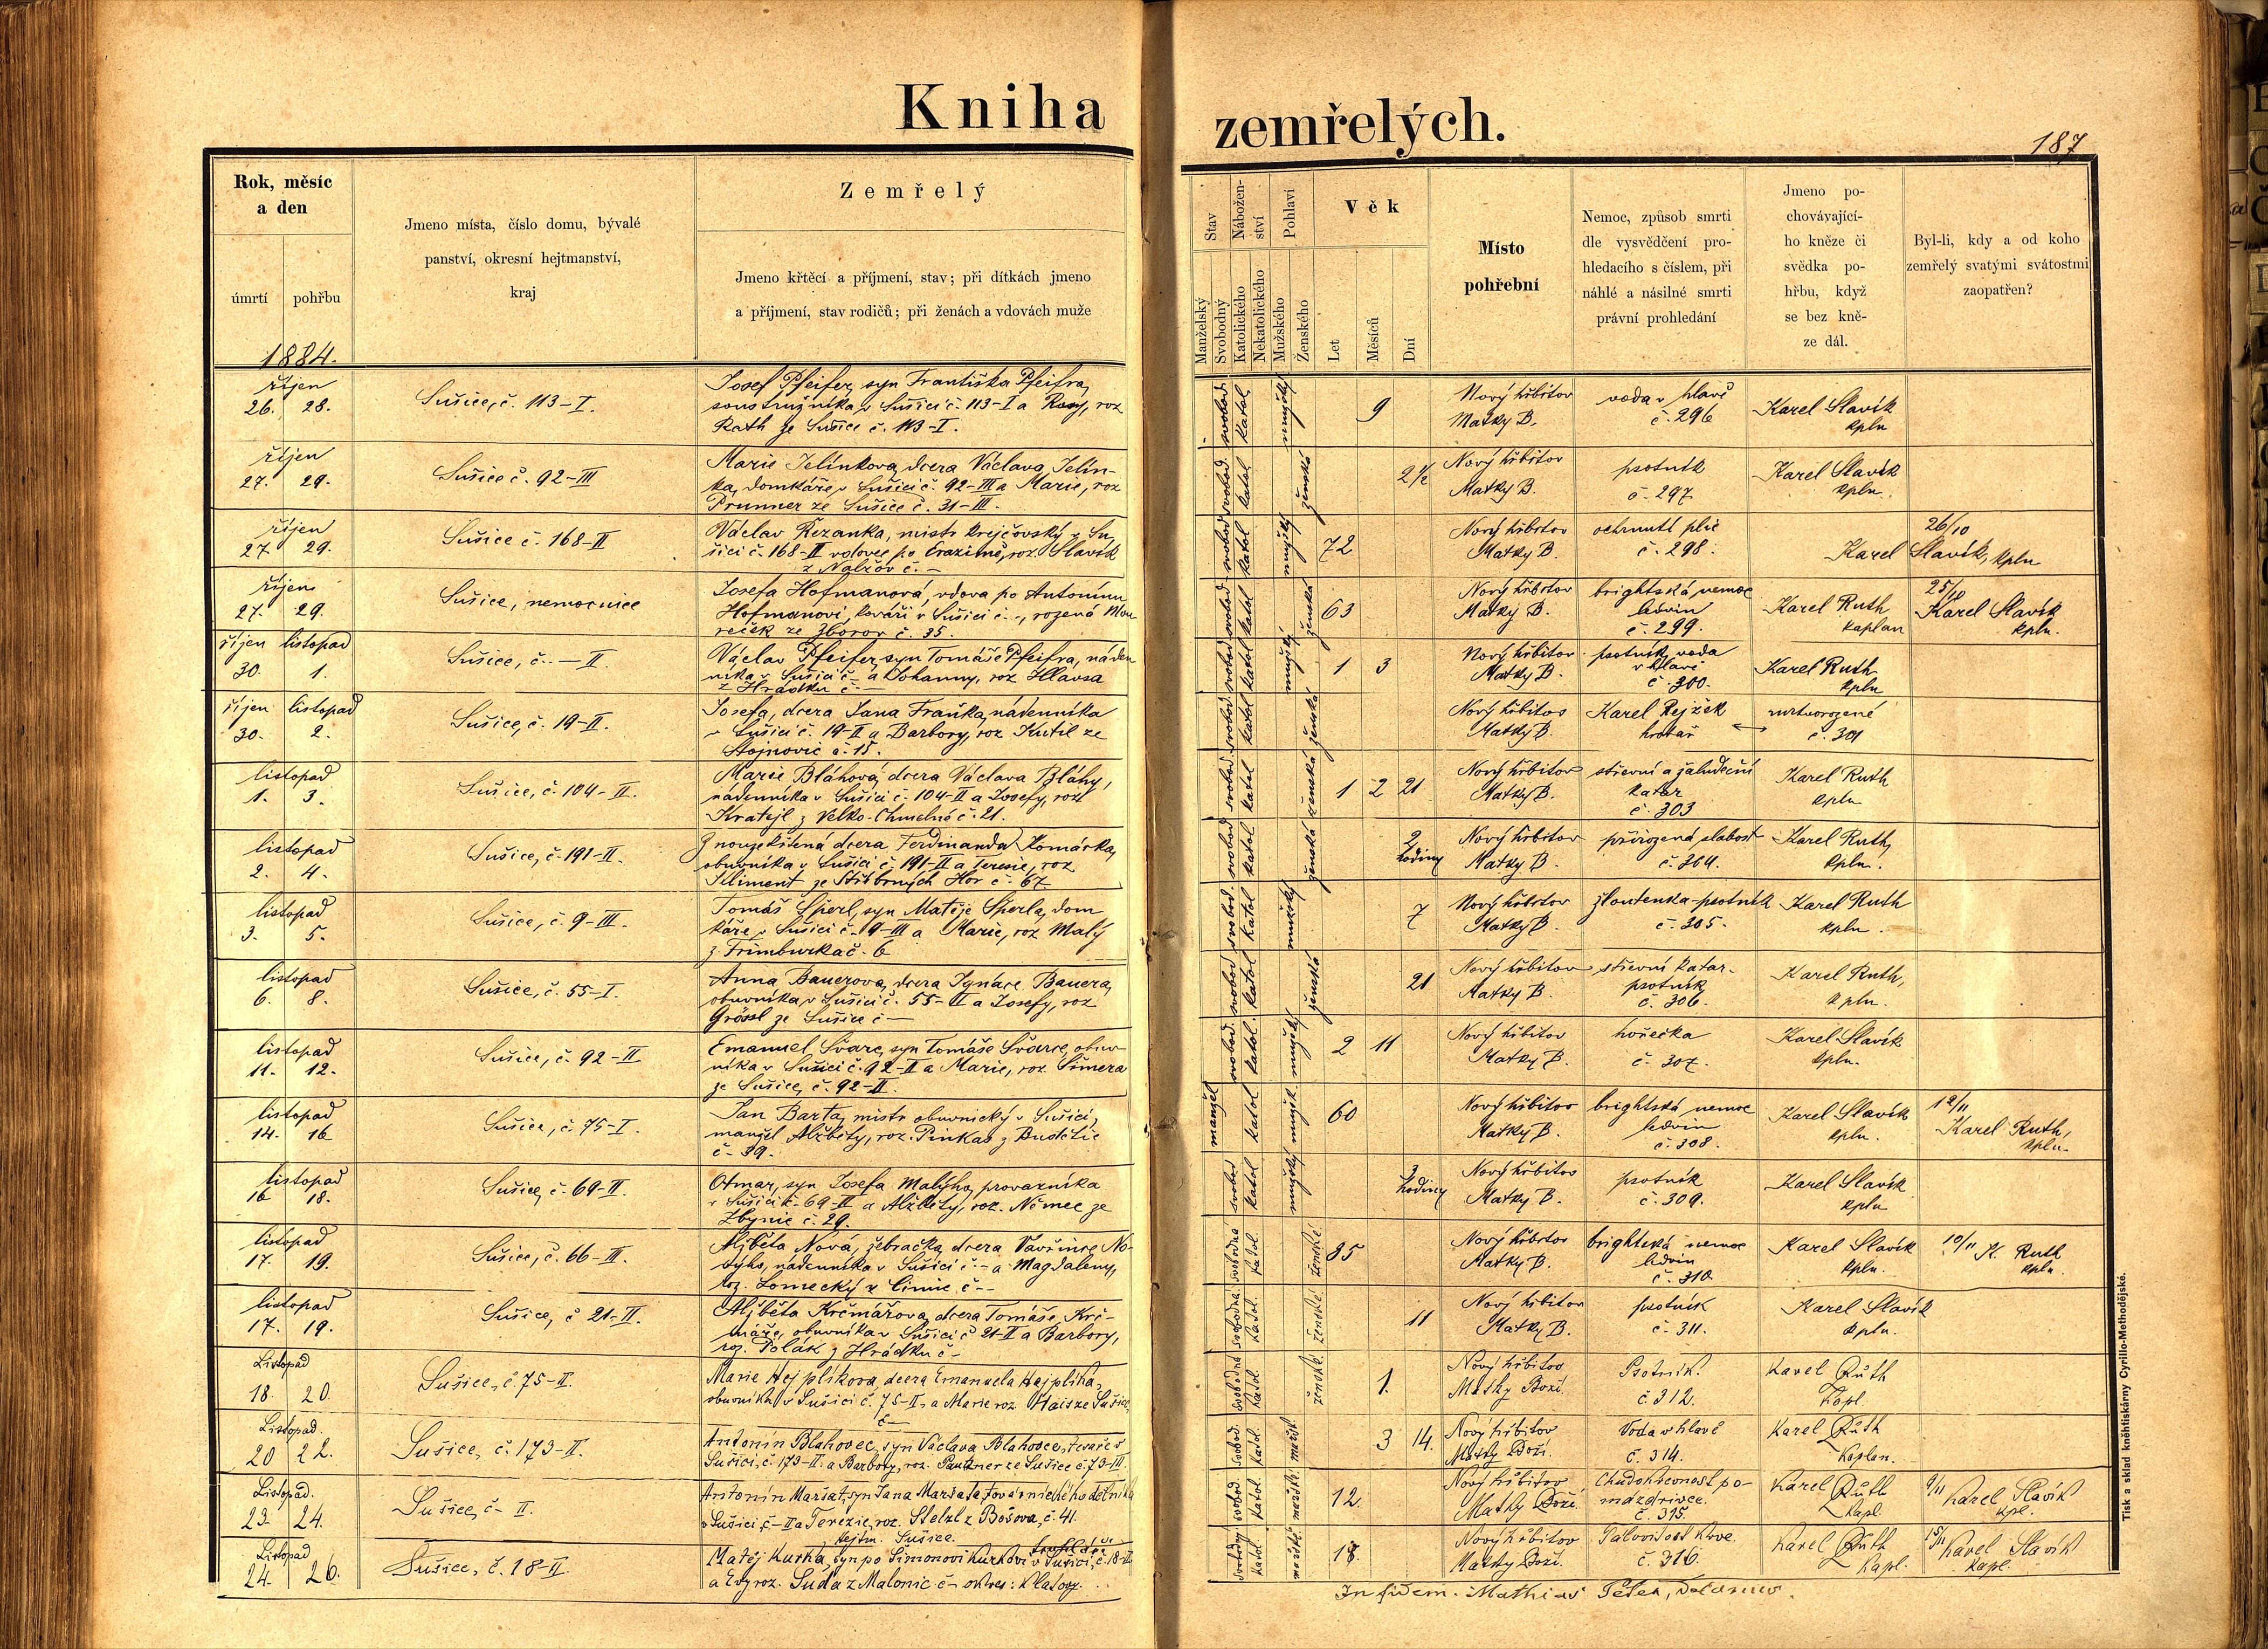 Kniha zemřelých.
187
Rok, měsíc
a den
úmrtí pohřbu
1884.
Jmeno místa, číslo domu, bývalé
panství, okresní hejtmanství,
kraj
Zemřelý
Jmeno křtěcí a příjmení, stav; při dítkách jmeno
a příjmení, stav rodičů; při ženách a vdovách muže
Stav
Manželský
Svobodný
Nábožen-
ství
Katolického
Nekatolického
Pohlaví
Mužského
Ženského
Věk
Let
Měsíců
Dní
Místo
pohřební
Nemoc, způsob smrti
dle vysvědčení pro-
hledacího s číslem, při
náhlé a násilné smrti
právní prohledání
Jmeno po-
chovávající-
ho kněze či
svědka po-
hřbu, když
se bez kně-
ze dál.
Byl-li, kdy a od koho
zemřelý svatými svátostmi
zaopatřen?
říjen
26. 28.
Sušice, č. 113-I.
Josef Pfeifer, syn Františka Pfeifra,
soustružníka v Sušici č. 113-I a Rosy, roz
Rath ze Sušice č. 113-I.
svobod. katol. mužský
9
Nový hřbitov
Matky B.
voda v hlavě
č. 296
Karel Slavík
kpln
říjen
27. 29.
Sušice č. 92-III
Marie Jelínkova, dcera Václava Jelín-
ka, domkáře v Sušici č. 92-III a Marie, roz
Prunner ze Sušice č. 31-III.
svobod. katol ženská
2 1/2
Nový hřbitov
Matky B.
psotník
č. 297
Karel Slavík
kpln.
říjen
27. 29.
Sušice č. 168-II
Václav Řezanka, mistr krejčovský v Su-
šici č. 168-II vdovec po , roz. Slavík
z Nalžov č. -
svobod katol mužský
72
Nový hřbitov
Matky B.
ochrnutí plic
č. 298.
26/10
Karel Slavík, kpln
říjen
27. 29.
Sušice, nemocnice
Josefa Hofmanová, vdova po Antonínu
Hofmanovi, kováři v Sušici č. -, rozená Mou-
reček ze Zborov č. 35.
svobod katol ženská
63
Nový hřbitov
Matky B.
brightská nemoc
ledvin
č. 299.
Karel Ruth
kaplan
25/10
Karel Slavík
kpln.
říjen listopad
30. 1.
Sušice, č. - II.
Václav Pfeifer, syn Tomáše Pfeifra, náden
níka v Sušici č. - a Johanny, roz Hlavsa
z Hrádku č. -
svobod katol mužský
1 3
Nový hřbitov
Matky B.
psotník, voda
v hlavě
č. 300.
Karel Ruth
kpln
říjen listopad
30. 2.
Sušice, č. 19-II.
Josefa, dcera Jana Fraňka, nádenníka
v Sušici č. 19-II a Barbory, roz Kutil ze
Stojnovic č. 15.
svobod katol ženská
Nový hřbitov
Matky B.
Karel Rejžek
hrobař
mrtvorozené
č. 301
listopad
1. 3.
Sušice, č. 104-II.
Marie Bláhová, dcera Václava Bláhy,
nádenníka v Sušici č. 104-II a Josefy, roz
Kratejl z Velko-Chmelná č. 21.
svobod katol ženská
1 2 21
Nový hřbitov
Matky B.
střevní a žaludeční
katar
č. 303
Karel Ruth
kpln
listopad
2. 4.
Sušice, č. 191-II.
Z nouzekřtěná dcera Ferdinanda Komárka,
obuvníka v Sušici č. 191-II a Teresie, roz
Kliment ze Stříbrných Hor č. 67
svobod katol ženská
2
hodiny
Nový hřbitov
Matky B.
přirozená slabost
č. 304.
Karel Ruth,
kpln.
listopad
3. 5.
Sušice, č. 9-III.
Tomáš Šperl, syn Matěje Šperla, dom
káře v Sušici č. 9-III a Marie, roz Malý
z Frimburka č. 6
svobod. katol mužský
7
Nový hřbitov
Matky B.
žloutenka-psotník
č. 305.
Karel Ruth
kpln.
listopad
6. 8.
Sušice, č. 55-I.
Anna Bauerova, dcera Ignáce Bauera,
obuvníka v Sušici č. 55-II a Josefy, roz
Grössl ze Sušice č -
svobod katol ženská
21
Nový hřbitov
Matky B.
střevní katar.
psotník
č. 306.
Karel Ruth,
kpln.
listopad
11. 12.
Sušice, č. 92-II
Emanuel Švarc, syn Tomáše Švarce, obuv-
níka v Sušici č. 92-II a Marie, roz. Šimera
ze Sušice, č. 92-II.
svobod. katol. mužský
2 11
Nový hřbitov
Matky B.
hořečka
č. 307.
Karel Slavík
kpln.
listopad
14. 16
Sušice, č. 75-I.
Jan Barta, mistr obuvnický v Sušici,
manžel Alžběty, roz. Pinkas z Budětic
č. 39.
manžel katol mužsk.
60
Nový hřbitov
Matky B.
brightská nemoc
ledvin
č. 308.
Karel Slavík
kpln.
12/11
Karel Ruth,
kpln.
listopad
16 18.
Sušice, č. 69-II.
Otmar, syn Josefa Malýho, provazníka
v Sušici č. 69-II a Alžběty, roz. Němec ze
Zbynic č. 29.
svobod katol mužský
3
hodiny
Nový hřbitov
Matky B.
psotník
č. 309.
Karel Slavík
kpln
listopad
17. 19.
Sušice, č. 66-III.
Aljběta Nová, žebračka, dcera Vavřince No-
výho, nádenníka v Sušici č. - a Magdaleny,
roz. Lomecký z Cimic č -
svobodná katol. ženské
85
Nový hřbitov
Matky B.
brightská nemoc
ledvin
č. 310.
Karel Slavík
kpln.
10/11 K. Ruth
kpln.
listopad
17. 19.
Sušice, č 21-II.
Aljběta Krčmářova, dcera Tomáše Krč-
máře, obuvníka v Sušici č 21-II a Barbory,
roz. Polák z Hrádku č -
svobodná katol. ženské
11
Nový hřbitov
Matky B.
psotník
č. 311.
Karel Slavík
kpln.
Listopad
18. 20.
Sušice, č. 75-II.
Marie Hejplíkova, dcera Emanuela Hajplíka,
obuvníka v Sušici č. 75-II. a Marie roz. Hais ze Sušice,
č -
Svobodná katol. ženské.
1.
Nový hřbitov
Matky Boží.
Psotník.
č. 312.
Karel Růth
Kapl.
Listopad.
20 22.
Sušice, č. 173-II.
Antonín Blahovec, syn Václava Blahovce, tesaře v
Sušici, č. 173-II. a Barbory, roz. ze Sušice č. 73-III.
Svobod. katol. mužsk.
3 14.
Nový hřbitov
Matky Boží.
Voda v hlavě
č. 314.
Karel Růth
Kaplan.
Listopad.
23. 24.
Sušice, č - II.
Antonín Maršat, syn Jana Maršata, továrnického dělníka
v Sušici, č - II a Terézie, roz. Stelzl z Bošova, č. 41.
hejtm. Sušice.
svobod. katol. mužsk.
12.
Nový hřbitov
Matky Boží.
Chudokrevnost po-
mázdrivce.
č. 315.
Karel Růth
kapl.
9/11 Karel Slavík
kpl.
Listopad
24. 26.
Sušice, č. 18-II.
Matěj Kurka, syn po Šimonovi Kurkovi v Sušici, č. 18-II
a Evy roz. Suda z Malonic č - okres: Klatovy.
svobodný katol mužské
18.
Nový hřbitov
Matky Boží.
krve.
č. 316.
Karel Růth
kapl.
15/11 Karel Slavík
kapl.
In fidem. Mathias Petek,
Tisk a sklad kněhtiskárny Cyrillo-Methodějské.